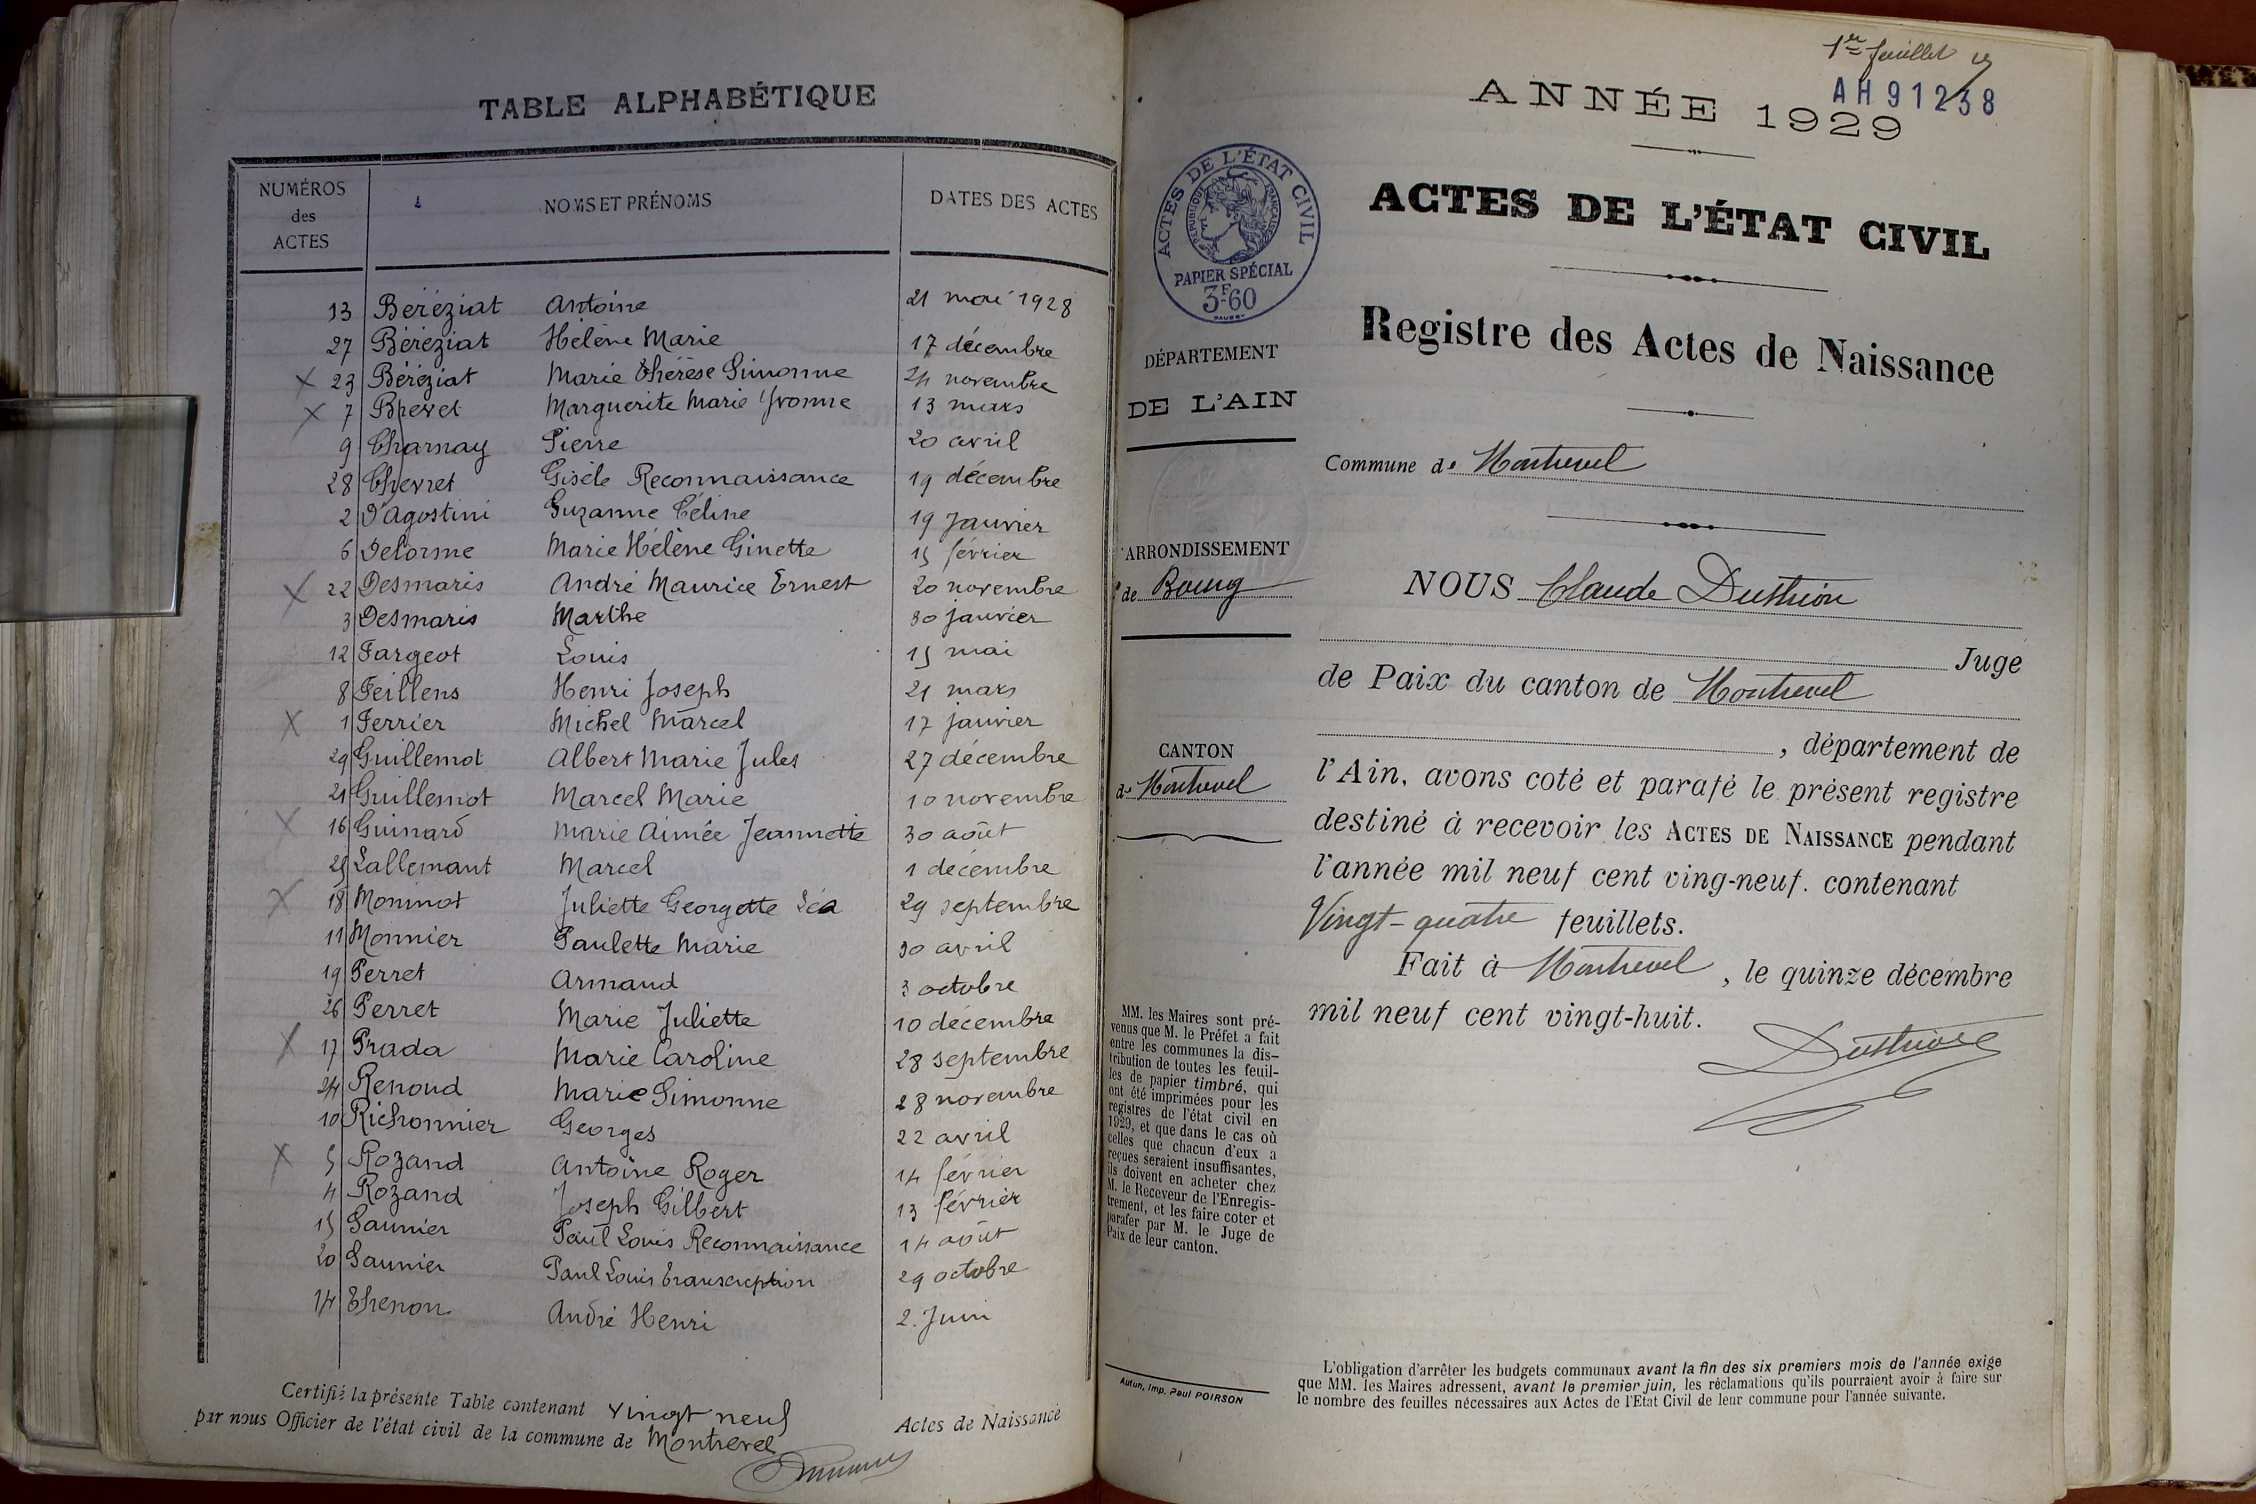 TABLE ALPHABÉTIQUE
NUMÉROS des ACTES
NOMS ET PRÉNOMS
DATES DES ACTES
13 Béréziat Antoine 21 mai 1928
27 Béréziat Hélène Marie 17 décembre
23 Béréziat Marie Thérèse Simonne 24 novembre
7 Brevet Marguerite Marie Yvonne 13 mars
9 Charnay Pierre 20 avril
28 Chevret Gisèle Reconnaissance 19 décembre
2 D'Agostini Suzanne Céline 19 Janvier
6 Delorme Marie Hélène Ginette 15 février
22 Desmaris André Maurice Ernest 20 novembre
3 Desmaris Marthe 30 janvier
12 Fargeot Louis 15 mai
8 Feillens Henri Joseph 21 mars
1 Ferrier Michel Marcel 17 janvier
29 Guillemot Albert Marie Jules 27 décembre
21 Guillemot Marcel Marie 10 novembre
16 Guinard Marie Aimée Jeannette 30 août
25 Lallemant Marcel 1 décembre
18 Moninot Juliette Georgette Léa 29 septembre
11 Monnier Paulette Marie 30 avril
19 Perret Armand 3 octobre
26 Perret Marie Juliette 10 décembre
17 Prada Marie Caroline 28 septembre
24 Renoud Marie Simonne 28 novembre
10 Richonnier Georges 22 avril
5 Rozand Antoine Roger 14 février
4 Rozand Joseph Gilbert 13 février
15 Saunier Paul Louis Reconnaissance 14 août
20 Saunier Paul Louis transcription 29 octobre
14 Thenon André Henri 2 Juin
Certifié la présente Table contenant vingt neuf Actes de Naissance
par nous Officier de l'état civil de la commune de Montrevel
1er feuillet
AH91238
ANNÉE 1929
ACTES DE L'ÉTAT CIVIL
RÉPUBLIQUE FRANÇAISE
PAPIER SPÉCIAL
3F.60
ACTES DE L'ÉTAT CIVIL
Registre des Actes de Naissance
DÉPARTEMENT
DE L'AIN
Commune de Montrevel
ARRONDISSEMENT
de Bourg
CANTON
de Montrevel
NOUS Claude Duthion
Juge
de Paix du canton de Montrevel
, département de
l'Ain, avons coté et parafé le présent registre
destiné à recevoir les ACTES DE NAISSANCE pendant
l'année mil neuf cent ving-neuf. contenant
Vingt-quatre feuillets.
Fait à Montrevel, le quinze décembre
mil neuf cent vingt-huit.
MM. les Maires sont pré-
venus que M. le Préfet a fait
entre les communes la dis-
tribution de toutes les feuil-
les de papier timbré, qui
ont été imprimées pour les
registres de l'état civil en
1929, et que dans le cas où
celles que chacun d'eux a
reçues seraient insuffisantes,
ils doivent en acheter chez
M. le Receveur de l'Enregis-
trement, et les faire coter et
parafer par M. le Juge de
Paix de leur canton.
Autun, Imp. Paul POIRSON
L'obligation d'arrêter les budgets communaux avant la fin des six premiers mois de l'année exige
que MM. les Maires adressent, avant le premier juin, les réclamations qu'ils pourraient avoir à faire sur
le nombre des feuilles nécessaires aux Actes de l'Etat Civil de leur commune pour l'année suivante.